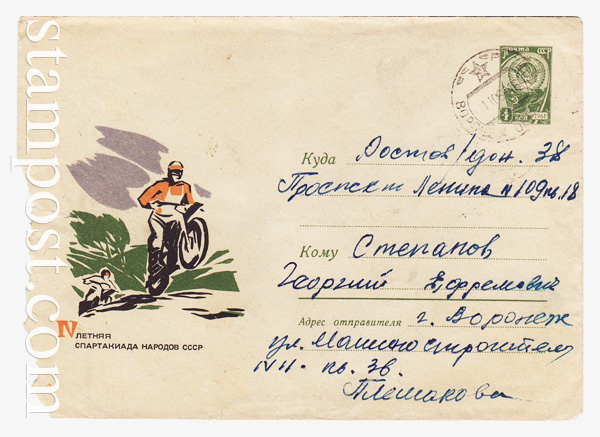 stampost.com
ПОЧТА СССР
4 КОП
Куда Ростов/Дон. 38
Проспект Ленина №109 кв. 18
Кому Степанов
Георгий Ефремович
Адрес отправителя г. Воронеж
ул. Машиностроителей
кв. 38.
Плешакова
IV ЛЕТНЯЯ
СПАРТАКИАДА НАРОДОВ СССР